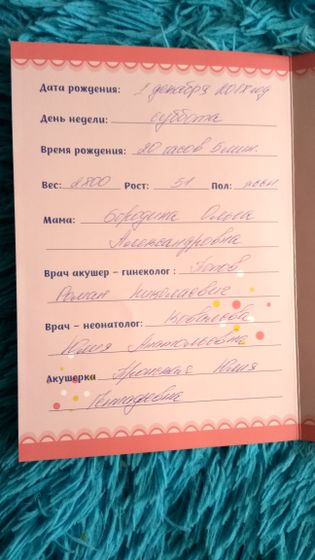 Дата рождения: 1 декабря 2018 год
День недели: суббота
Время рождения: 20 часов 5 мин.
Вес: 2800 Рост: 51 Пол: жен
Мама: Бородина Ольга
Александровна
Врач акушер - гинеколог : Попов
Роман Николаевич
Врач - неонатолог: Ковалёва
Юлия Анатольевна
Акушерка Юлия
Геннадьевна